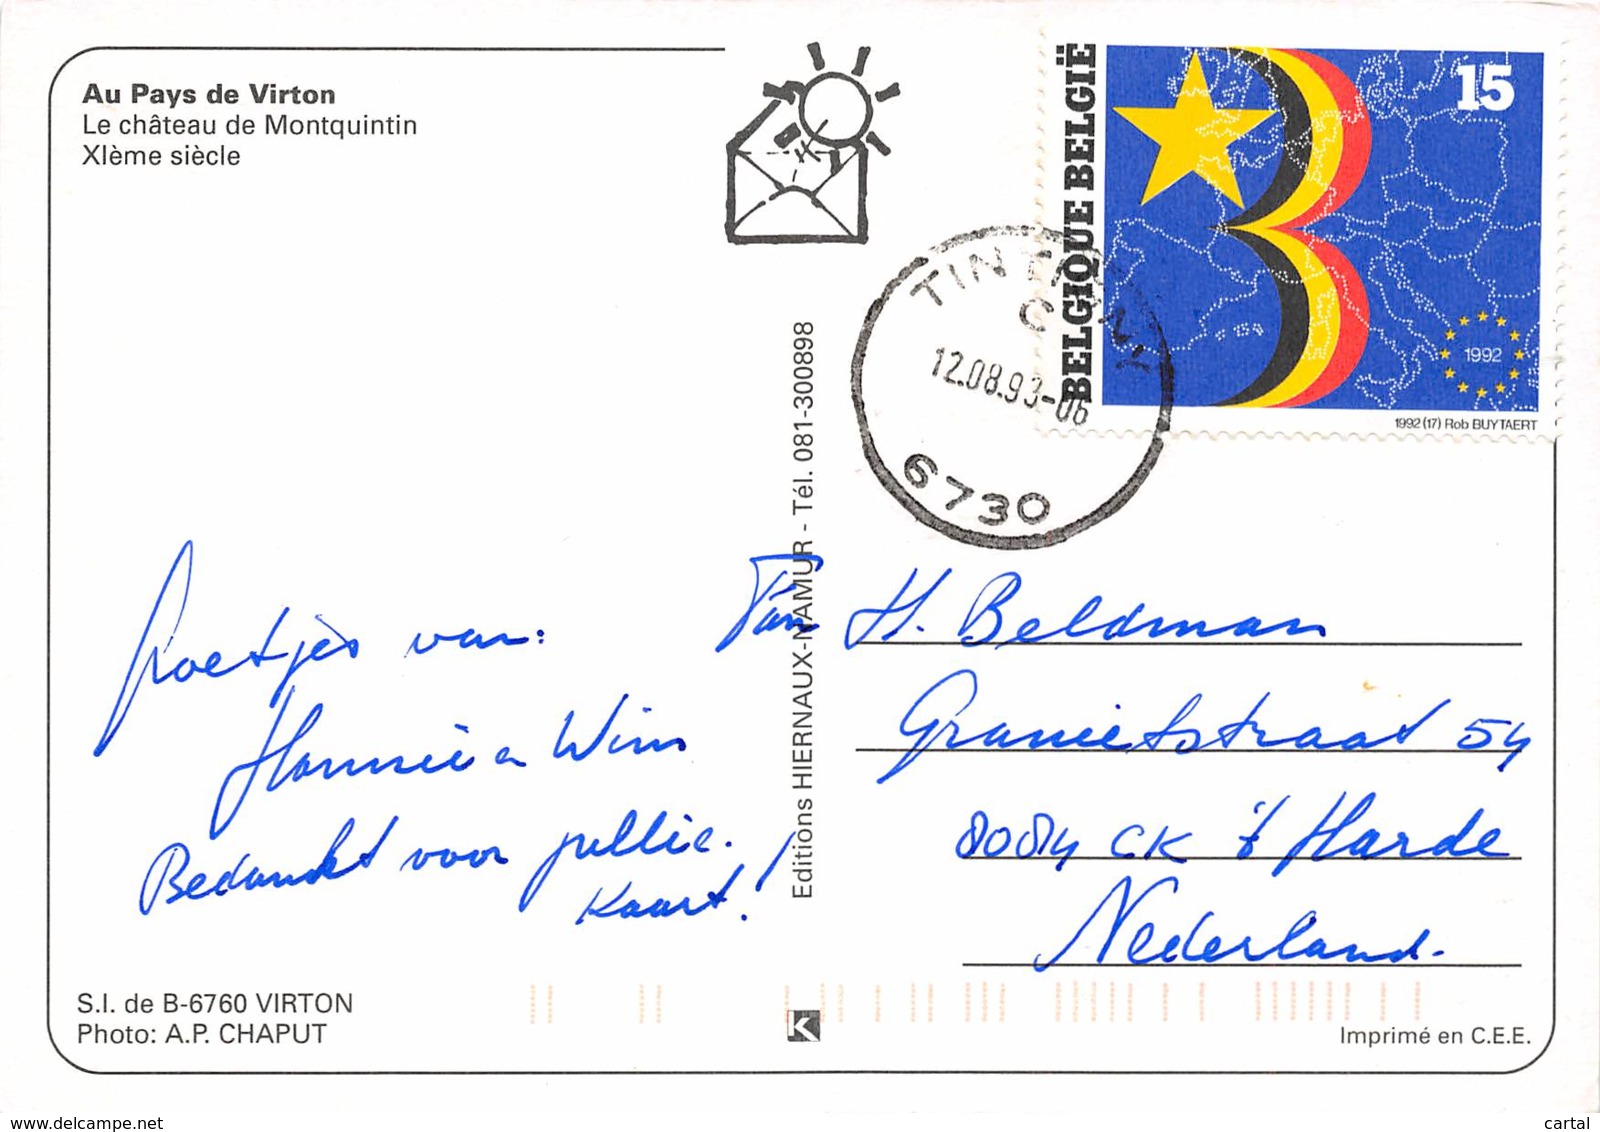 Au Pays de Virton
Le château de Montquintin
XIème siècle
BELGIQUE BELGIË
15
1992
1992 (17) Rob BUYTAERT
TINTIGNY
C
12.08.93-06
6730
Editions HIERNAUX-NAMUR - Tél. 081-300898
Groetjes van:
Hannie en Wim
Bedankt voor jullie
kaart!
Fam H. Beldman
Granietstraat 54
8084 CK 't Harde
Nederland.
S.I. de B-6760 VIRTON
Photo: A.P. CHAPUT
K
Imprimé en C.E.E.
www.delcampe.net
cartal